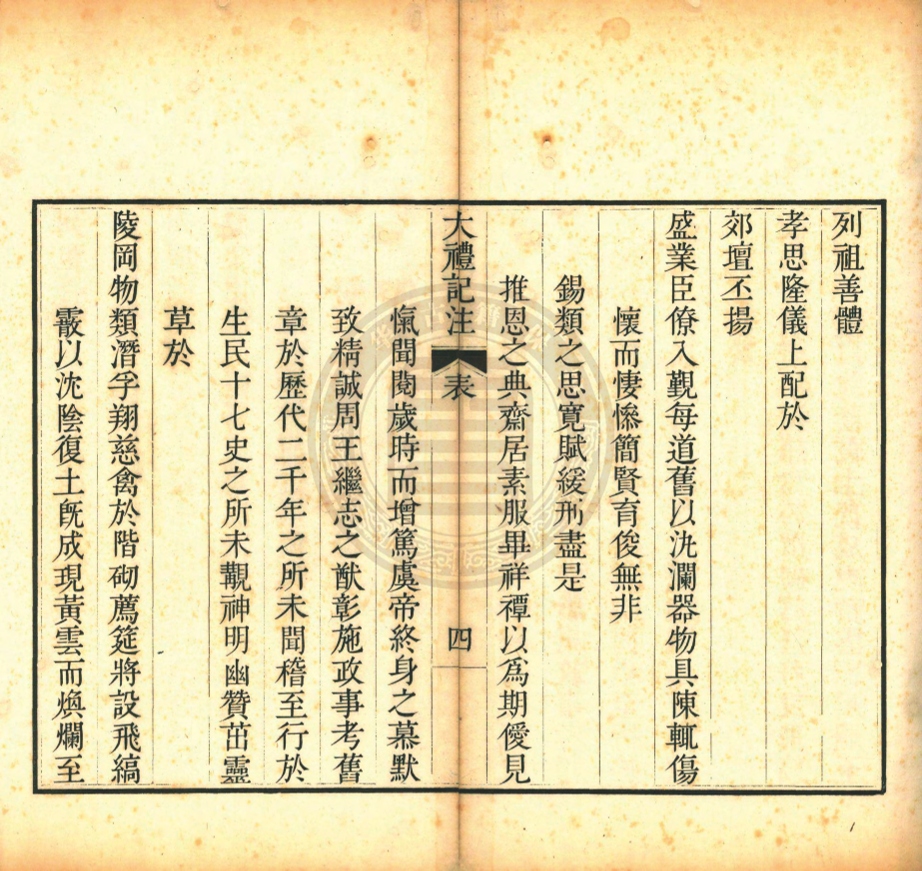 列祖善體
孝思隆儀上配於
郊壇丕揚
盛業臣僚入覲每道舊以汍瀾器物具陳輒傷
懷而悽慘簡賢育俊無非
錫類之思寬賦緩刑盡是
推恩之典齋居素服畢祥禫以爲期僾見
大禮記注 表 四
愾聞閱歲時而增篤虞帝終身之慕默
致精誠周王繼志之猷彰施政事考舊
章於歷代二千年之所未聞稽至行於
生民十七史之所未觀神明幽贊茁靈
草於
陵岡物類潛孚翔慈禽於階砌薦筵將設飛縞
霰以沈陰復土旣成現黃雲而煥爛至